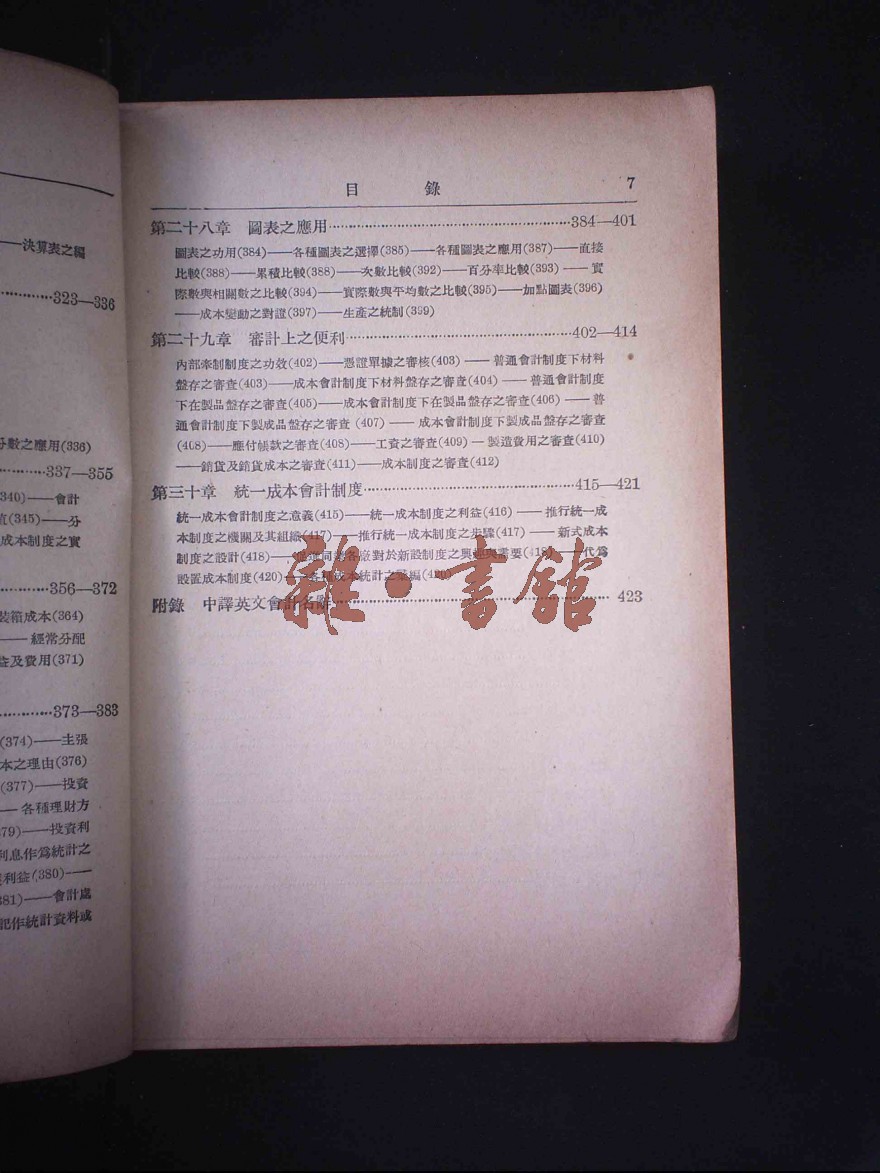 ——決算表之編
323—336
分數之應用(336)
337—355
340)——會計
值(345)——分
成本制度之實
356—372
裝箱成本(364)
——經常分配
益及費用(371)
373—383
(374)——主張
本之理由(376)
(377)——投資
——各種理財方
379)——投資利
利息作爲統計之
利益(380)——
381)——會計處
記作統計資料或
目錄 7
第二十八章 圖表之應用 384—401
圖表之功用(384)——各種圖表之選擇(385)——各種圖表之應用(387)——直接
比較(388)——累積比較(388)——次數比較(392)——百分率比較(393)——實
際數與相關數之比較(394)——實際數與平均數之比較(395)——加點圖表(396)
——成本變動之對證(397)——生產之統制(399)
第二十九章 審計上之便利 402—414
內部牽制制度之功效(402)——憑證單據之審核(403)——普通會計制度下材料
盤存之審查(403)——成本會計制度下材料盤存之審查(404)——普通會計制度
下在製品盤存之審查(405)——成本會計制度下在製品盤存之審查(406)——普
通會計制度下製成品盤存之審查(407)——成本會計制度下製成品盤存之審查
(408)——應付帳款之審查(408)——工資之審查(409)—製造費用之審查(410)
——銷貨及銷貨成本之審查(411)——成本制度之審查(412)
第三十章 統一成本會計制度 415—421
統一成本會計制度之意義(415)——統一成本制度之利益(416)——推行統一成
本制度之機關及其組織(417)——推行統一成本制度之步驟(417)——新式成本
制度之設計(418)——同業各廠對於新設制度之興趣與需要(418)——代爲
設置成本制度(420)——各種成本統計之彙編(420)
附錄 中譯英文會計名辭 423
雜·書館